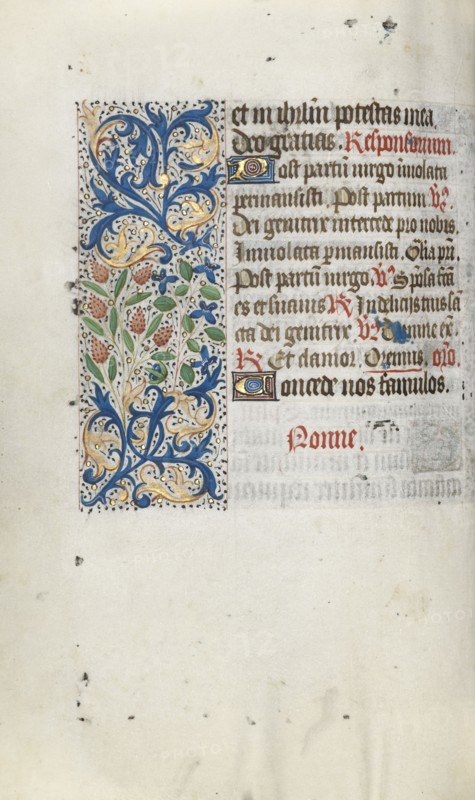 et in ihrl̄m potestas mea.
Deo gratias. Responsorium.
Post partū virgo inuiolata
permansisti. Post partum. V̄.
Dei genitrix intercede pro nobis.
Inuiolata permansisti. Glīa pr̄i.
Post partū virgo. V̄ Speciosa fac̄ta
es et suauis R̄ In deliciis tuis sā
cta dei genitrix V̄ Domine ex.
R̄ Et clamor. Oremus. or̄o.
Concede nos famulos.
Nonne.